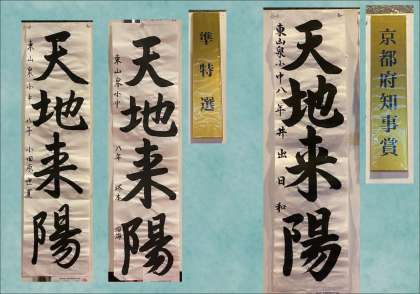 天地来陽
東山泉小中 八年 小田原
天地来陽
東山泉小中 八年
準特選
天地来陽
東山泉小中八年井出日和
京都府知事賞